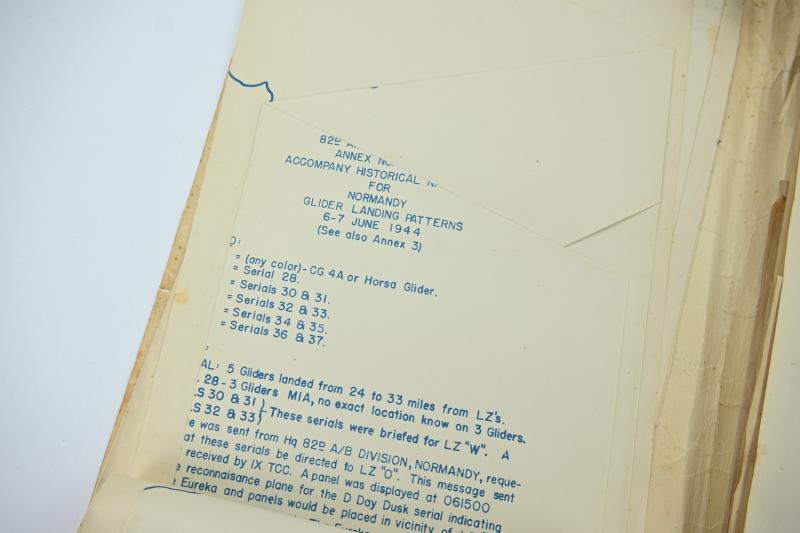 82D A
ANNEX NO.
ACCOMPANY HISTORICAL N
FOR
NORMANDY
GLIDER LANDING PATTERNS
6-7 JUNE 1944
(See also Annex 3)
D:
= (any color)- CG 4A or Horsa Glider.
= Serial 28.
= Serials 30 & 31.
= Serials 32 & 33.
= Serials 34 & 35.
= Serials 36 & 37.
:
AL: 5 Gliders landed from 24 to 33 miles from LZ's.
. 28-3 Gliders MIA, no exact location know on 3 Gliders.
LS 30 & 31
LS 32 & 33 } These serials were briefed for LZ "W". A
e was sent from Hq 82D A/B DIVISION, NORMANDY, reque-
at these serials be directed to LZ "O". This message sent
received by IX TCC. A panel was displayed at 061500
e reconnaisance plane for the D Day Dusk serial indicating
e Eureka and panels would be placed in vicinity of